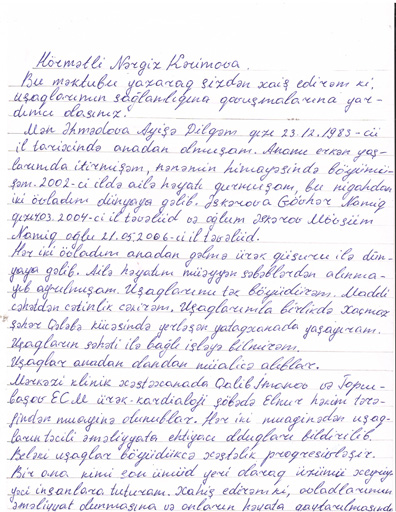 Hörmətli Nərgiz Kərimova.
Bu məktubu yazarag sizdən xaiş edirəm ki,
uşaglarımın sağlamlığına qovuşmalarına yar-
dımcı olasınız.
Mən Əhmədova Ayişə Dilqəm qızı 23.12.1983-cü
il tarixində anadan olmuşam. Anamı erkən yaş-
larımda itirmişəm, nənənin himayəsində böyümü-
şəm. 2002-ci ildə ailə həyatı qurmuşam, bu nigahdan
iki övladım dünyaya gəlib. İskəndərova Gövhər Namig
qızı 03.2004-cü il təvəllüd və oğlum Əskərov Mövsüm
Namig oğlu 21.05.2006-ci il təvəllüd.
Hər iki övladım anadan gəlmə ürək qüsuru ilə dün-
yaya gəlib. Ailə həyatım müəyyən səbəblərdən alınma-
yıb ayrılmışam. Uşaqlarımı tək böyüdürəm. Maddi
cəhətdən çətinlik çəkirəm. Uşaqlarımla birlikdə Xaçmaz
şəhər Qələbə küçəsində yerləşən yataqxanada yaşayıram.
Uşaqların səhəti ilə bağlı işləyə bilmirəm.
Uşaqlar anadan olandan müalicə alıblar.
Mərkəzi klinik xəstəxanada Qalib İmanov və Topçu-
başov ECM ürək-kardialoji şöbədə Elnur həkim tərə-
findən muayinə olunublar. Hər iki muaginədən uşaq-
ların təcili əməliyyata ehtiyacı olduqları bildirilib.
Beləki uşaqlar böyüdükcə xəstəlik progresivləşir.
Bir ana kimi son ümüd yeri olaraq üzümü xeyriy-
yəçi insanlara tuturam. Xahiş edirəm ki, övladlarımın
əməliyyat olunmasına və onların həyata qaytarılmasında